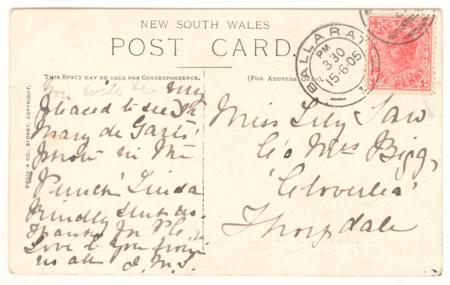 NEW SOUTH WALES
POST CARD.
THIS SPACE MAY BE USED FOR CORRESPONDENCE.
(FOR ADDRESS ONLY.)
BALLARAT
PM
3.30
15·6·05
You will be very
pleased to see
Mary de
photo in the
Punch Linda
kindly sent us.
Thanks for P.C.
Love to you from
us all
Miss Lily Law
C/o Mrs Bigg,
'Cloverlea'
Thorpdale
SWAIN & CO., SYDNEY, COPYRIGHT.